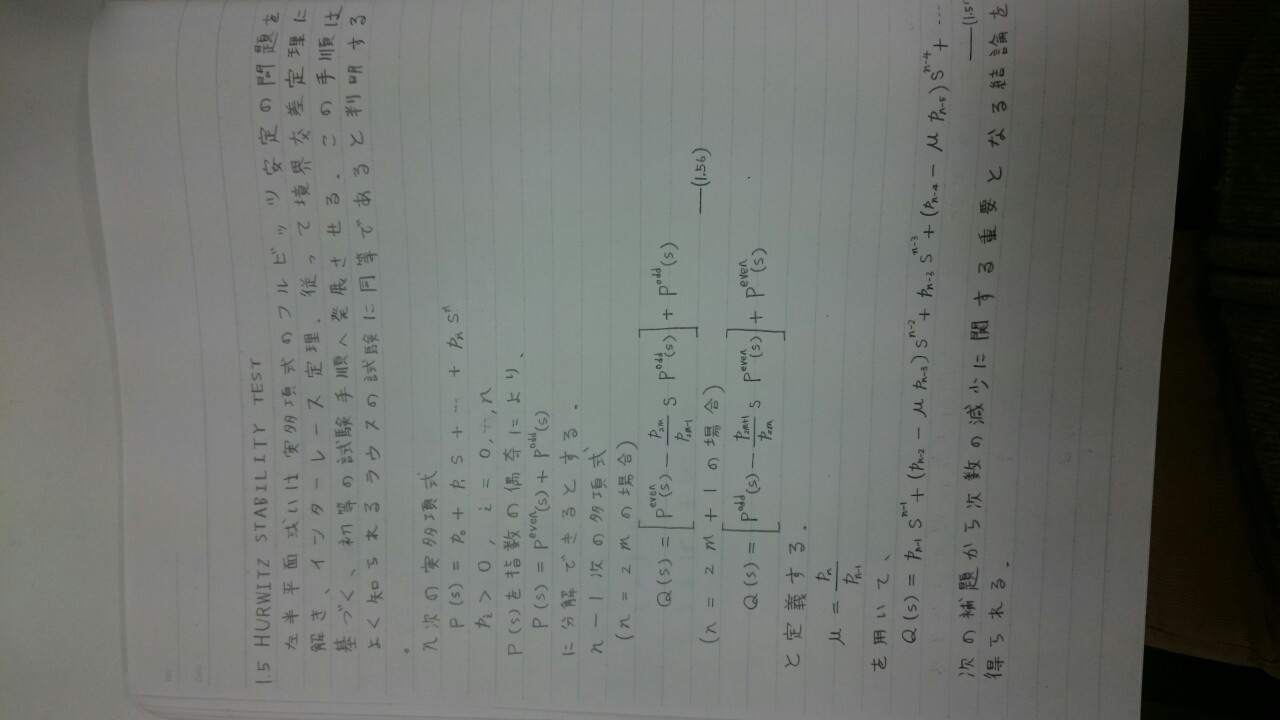 1.5 HURWITZ STABILITY TEST
左半平面或いは実多項式のフルビッツ安定の問題を
解き、インターレース定理、従って境界交差定理に
基づく、初等の試験手順へ発展させる. この手順は
よく知られるラウスの試験に同等であると判明する
。
n次の実多項式
P(s) = p₀ + p₁ s + … + pₙ sⁿ
pᵢ > 0, i = 0,…,n
P(s)を指数の偶奇により、
P(s) = P^even(s) + P^odd(s)
に分解できるとする.
n-1次の多項式
(n = 2mの場合)
Q(s) = [P^even(s) - p_2m/p_2m-1 s P^odd(s)] + P^odd(s)
―(1.56)
(n = 2m+1の場合)
Q(s) = [P^odd(s) - p_2m+1/p_2m s P^even(s)] + P^even(s)
と定義する.
μ = p_n/p_n-1
を用いて、
Q(s) = p_n-1 s^n-1 + (p_n-2 - μ p_n-3) s^n-2 + p_n-3 s^n-3 + (p_n-4 - μ p_n-5) s^n-4 + …
次の補題から次数の減少に関する重要となる結論を
得られる.